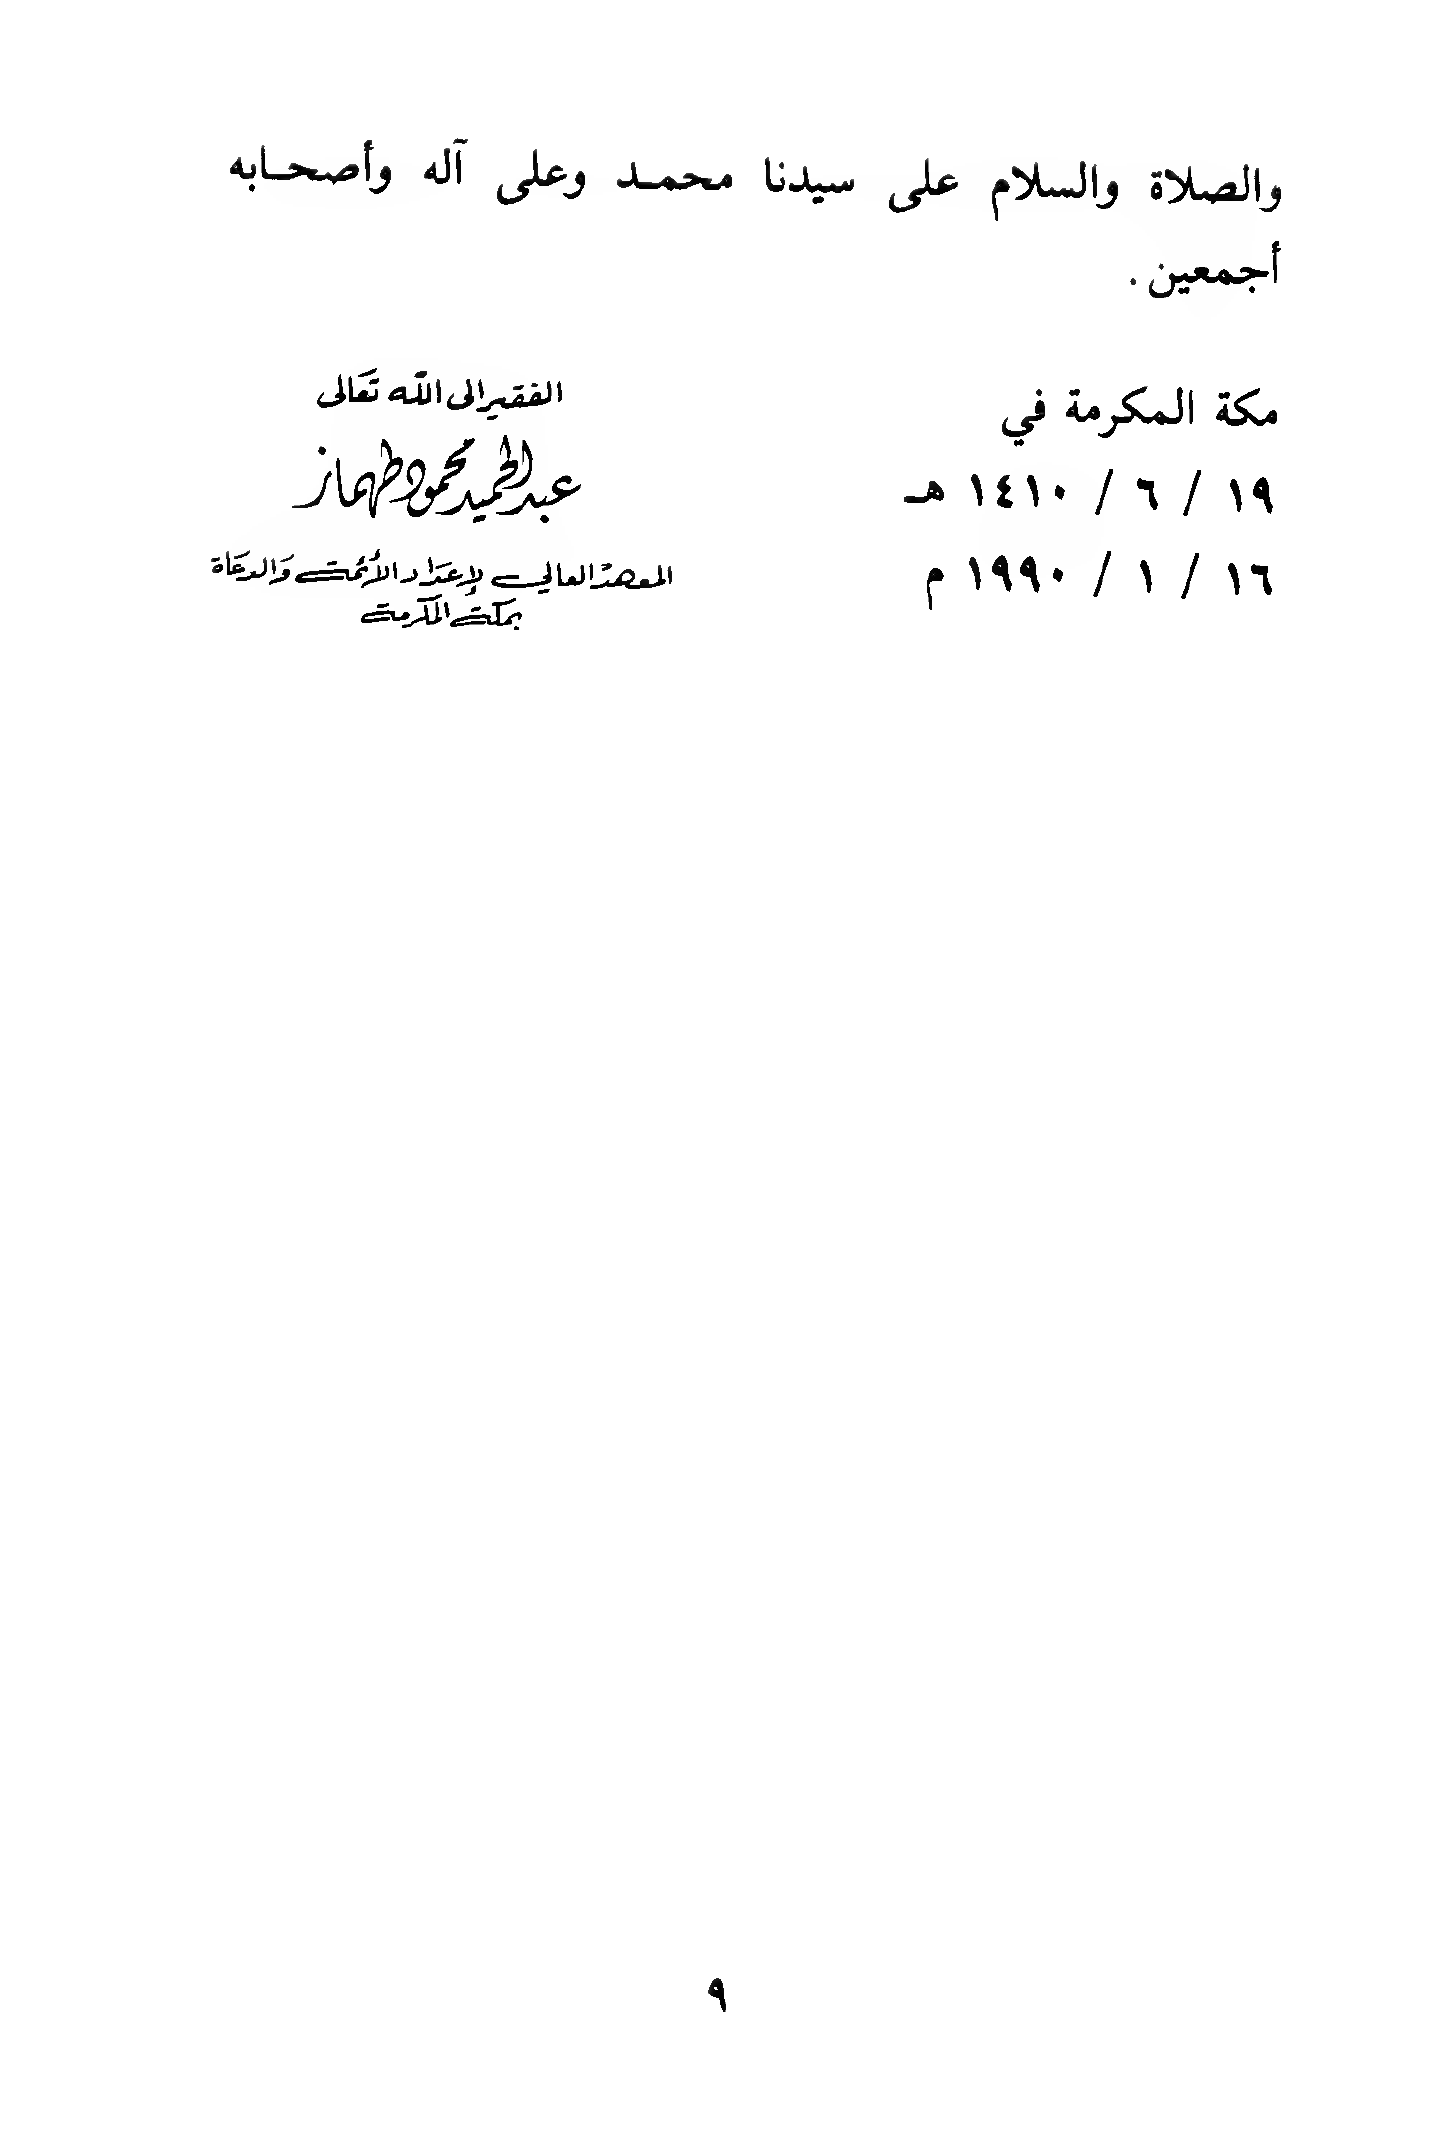 والصلاة والسلام على سيدنا محمـد وعلى آله وأصحـابه
أجمعين .
مكة المكرمة في
١٩ / ٦ / ١٤١٠ هـ
١٦ / ١ / ١٩٩٠ م
الفقير الى الله تعالى
عبد الحميد محمود طهماز
المعهد العالي لإعداد الأئمة والدعاة
بمكة المكرمة
٩